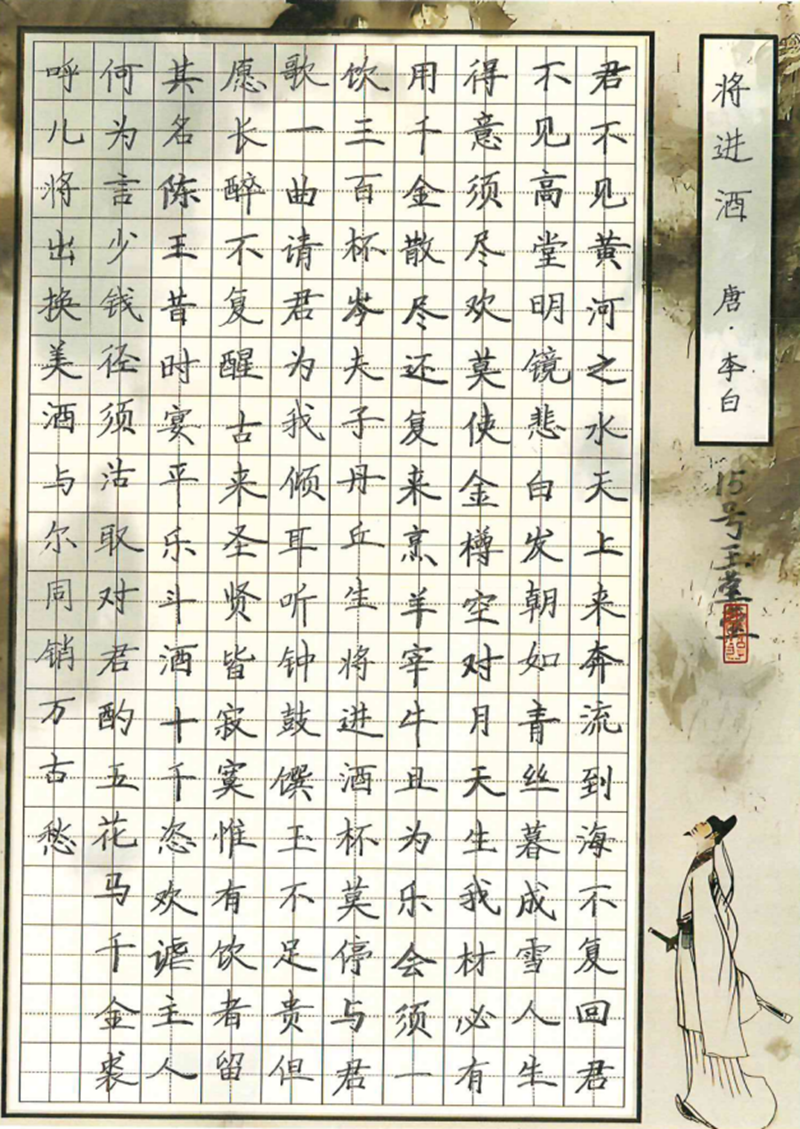 将进酒 唐·李白
15号王
君不见黄河之水天上来奔流到海不复回君
不见高堂明镜悲白发朝如青丝暮成雪人生
得意须尽欢莫使金樽空对月天生我材必有
用千金散尽还复来烹羊宰牛且为乐会须一
饮三百杯岑夫子丹丘生将进酒杯莫停与君
歌一曲请君为我倾耳听钟鼓馔玉不足贵但
愿长醉不复醒古来圣贤皆寂寞惟有饮者留
其名陈王昔时宴平乐斗酒十千恣欢谑主人
何为言少钱径须沽取对君酌五花马千金裘
呼儿将出换美酒与尔同销万古愁